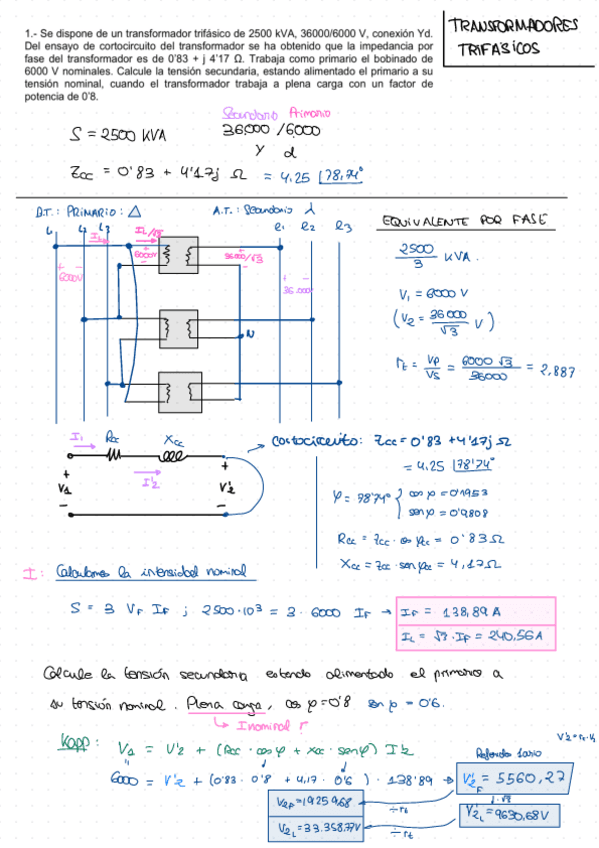 1.- Se dispone de un transformador trifásico de 2500 kVA, 36000/6000 V, conexión Yd.
Del ensayo de cortocircuito del transformador se ha obtenido que la impedancia por
fase del transformador es de 0'83 + j 4'17 Ω. Trabaja como primario el bobinado de
6000 V nominales. Calcule la tensión secundaria, estando alimentado el primario a su
tensión nominal, cuando el transformador trabaja a plena carga con un factor de
potencia de 0'8.
TRANSFORMADORES
TRIFÁSICOS
Secundario Primario
S = 2500 KVA 36000 / 6000
Y d
Zcc = 0'83 + 4'17j Ω = 4.25 |78,74°
B.T.: PRIMARIO: Δ A.T.: Secundario
EQUIVALENTE POR FASE
L1 L2 L3 R1 R2 R3
IL IL/√3
+ 6000V - + 6000V - + 36000/√3 - + 36.000 -
N
2500/3 KVA.
V1 = 6000 V
(V2 = 36000/√3 V)
rt = Vp/Vs = 6000 √3/36000 = 2,887
I1 Rcc Xcc
+ V1 - I'2 + V'2 -
Cortocircuito: Zcc = 0'83 + 4'17j Ω
= 4.25 |78'74°
φ = 78'74° { cos φ = 0'1953
sen φ = 0'9808
Rcc = Zcc · cos φcc = 0'83 Ω
Xcc = Zcc · sen φcc = 4,17 Ω
I: Calculamos la intensidad nominal
S = 3 VF IF ; 2500·10³ = 3 · 6000 IF → IF = 138,89 A
IL = √3 · IF = 240,56 A
Calcule la tensión secundaria estando alimentado el primario a
su tensión nominal. Plena carga, cos φ = 0'8 sen φ = 0'6.
↳ Inominal
Kapp: V1 = V'2 + (Rcc · cos φ + Xcc · sen φ) I'2
6000 = V'2 + (0'83 · 0'8 + 4,17 · 0'6) · 138'89 →
Referido 1ario
V'2F = 5560,27
· √3
V'2L = 9630,68 V
÷ rt
V2F = 1925,968
V2L = 33.358,77V
÷ rt